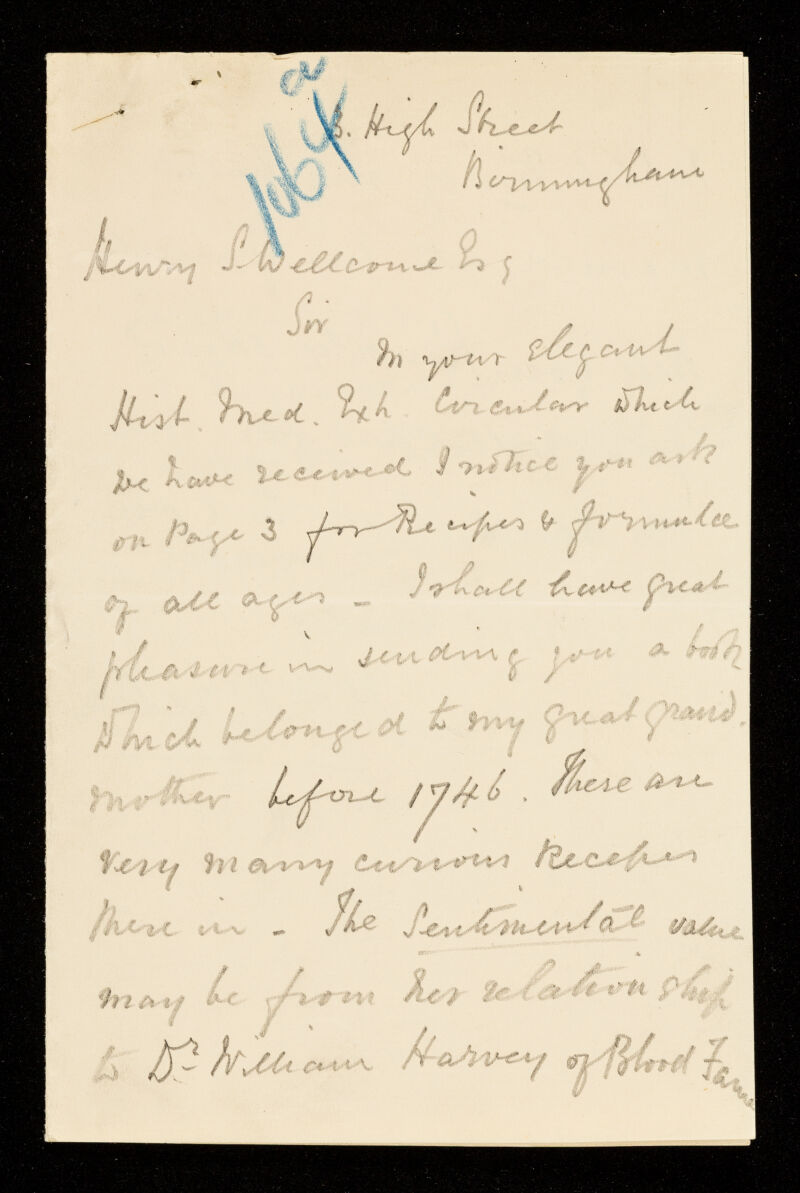 1064
a
3. High Street
Birmingham
Henry S Wellcome Esq
Sir
In your elegant
Hist. Med. Exh. Circular which
we have received I notice you ask
on Page 3 for Recipes & formulae
of all ages – I shall have great
pleasure in sending you a book
which belonged to my great grand.
mother before 1746. There are
very many curious Receipes
there in – The Sentimental value
may be from her relation ship
to Dr. William Harvey of Blood Fame